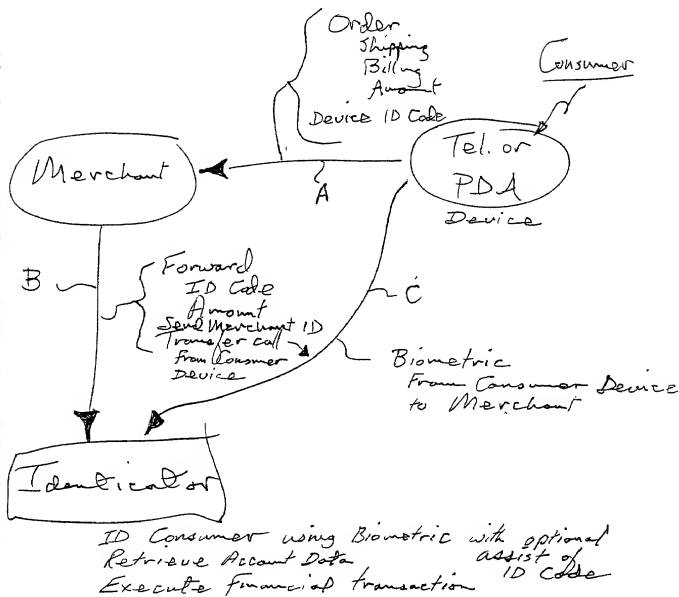 Order
Shipping
Billing
Amount
Device ID Code
Consumer
Tel. or
PDA
Device
Merchant
A
B
Forward
ID Code
Amount
Send Merchant ID
Transfer call
From Consumer
Device
C
Biometric
From Consumer Device
to Merchant
Identicator
ID Consumer using Biometric with optional
assist of
ID Code
Retrieve Account Data
Execute financial transaction